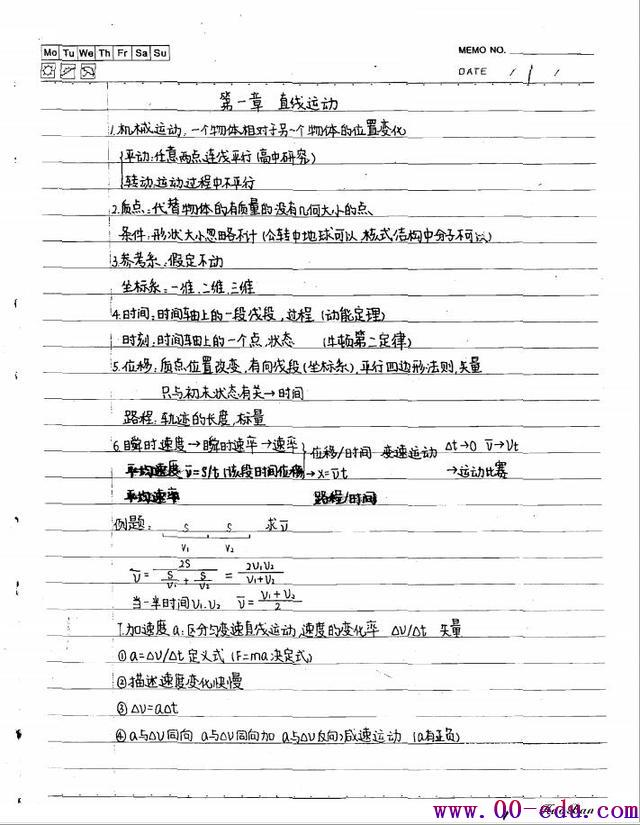 Mo Tu We Th Fr Sa Su
MEMO NO.
DATE / /
第一章 直线运动
1.机械运动,一个物体相对于另一个物体的位置变化
平动:任意两点连线平行(高中研究)
转动:运动过程中不平行
2.质点:代替物体的有质量的没有几何大小的点、
条件:形状大小忽略不计(公转中地球可以,核式结构中分子不可以)
3.参考系:假定不动
坐标系:一维、二维、三维
4.时间:时间轴上的一段线段,过程(动能定理)
时刻:时间轴上的一个点,状态 (牛顿第二定律)
5.位移:质点位置改变,有向线段(坐标系),平行四边形法则,矢量
只与初末状态有关→时间
路程:轨迹的长度,标量
6.瞬时速度→瞬时速率→速率 位移/时间 变速运动 Δt→0 v̅→Vt
平均速度 v̅=S/t(该段时间位移→x=v̅t →运动比赛
平均速率 路程/时间
例题: S S 求v̅
V₁ V₂
v̅=2S/(S/V₁+S/V₂)=2V₁V₂/(V₁+V₂)
当一半时间V₁.V₂ v̅=(V₁+V₂)/2
7.加速度a:区分匀变速直线运动,速度的变化率 ΔV/Δt 矢量
①a=ΔV/Δt定义式(F=ma决定式)
②描述速度变化快慢
③ΔV=aΔt
④a与ΔV同向 a与ΔV同向加 a与ΔV反向减速运动 (a有正负)
www.00-edu.com